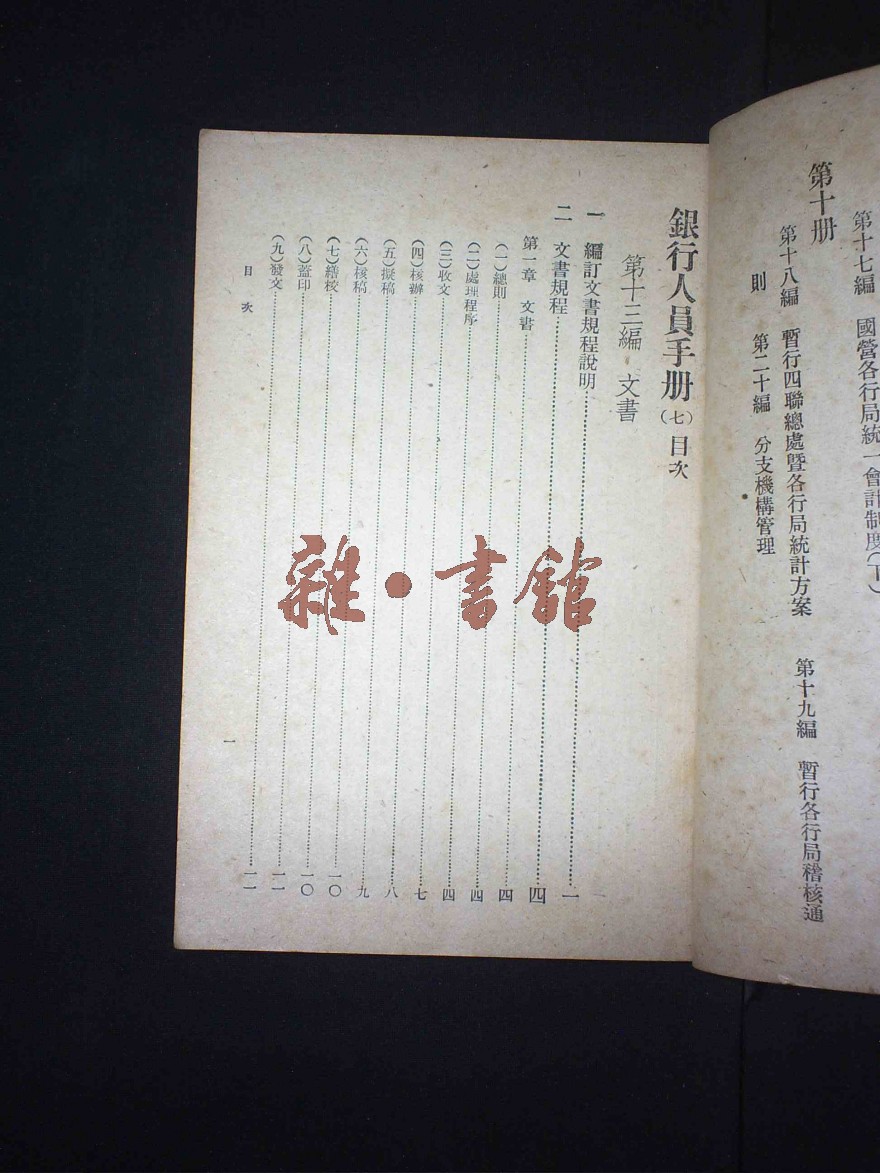 第十七編　國營各行局統一會計制度(下)
第十册
第十八編　暫行四聯總處暨各行局統計方案　第十九編　暫行各行局稽核通
則　第二十編　分支機構管理
銀行人員手册(七)目次
第十三編　文書
一　編訂文書規程說明……一
二　文書規程……四
第一章　文書……四
(一)總則……四
(二)處理程序……四
(三)收文……七
(四)核辦……八
(五)擬稿……九
(六)核稿……一〇
(七)繕校……一〇
(八)蓋印……一一
(九)發文……一一
目次
一
雜·書館